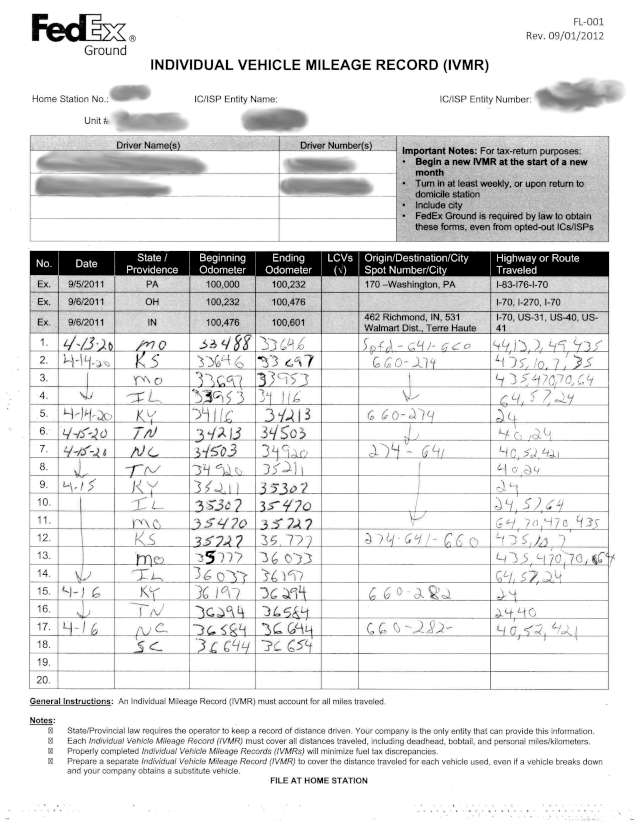 FedEx®
Ground
FL-001
Rev. 09/01/2012
INDIVIDUAL VEHICLE MILEAGE RECORD (IVMR)
Home Station No.: IC/ISP Entity Name: IC/ISP Entity Number:
Unit #:
Driver Name(s) Driver Number(s)
Important Notes: For tax-return purposes:
• Begin a new IVMR at the start of a new
month
• Turn in at least weekly, or upon return to
domicile station
• Include city
• FedEx Ground is required by law to obtain
these forms, even from opted-out ICs/ISPs
No. Date State / Providence Beginning Odometer Ending Odometer LCVs (√) Origin/Destination/City Spot Number/City Highway or Route Traveled
Ex. 9/5/2011 PA 100,000 100,232 170 –Washington, PA I-83-I76-I-70
Ex. 9/6/2011 OH 100,232 100,476 I-70, I-270, I-70
Ex. 9/6/2011 IN 100,476 100,601 462 Richmond, IN, 531 Walmart Dist., Terre Haute I-70, US-31, US-40, US-41
1. 4-13-20 MO 33488 33646 Spfd-641-660 44,13,7,49,435
2. 4-14-20 KS 33646 33697 660-274 435,10,7,35
3. MO 33697 33953 435,470,70,64
4. IL 33953 34116 64,57,24
5. 4-14-20 KY 34116 34213 660-274 24
6. 4-15-20 TN 34213 34503 40,24
7. 4-15-20 NC 34503 34920 274-641 40,52,421
8. TN 34920 35211 40,24
9. 4-15 KY 35211 35307 24
10. IL 35307 35470 24,57,64
11. MO 35470 35727 64,70,470,435
12. KS 35727 35,777 274-641-660 435,10,7
13. MO 35777 36033 435,470,70,64
14. IL 36033 36197 64,57,24
15. 4-16 KY 36197 36294 660-282 24
16. TN 36294 36584 24,40
17. 4-16 NC 36584 36644 660-282- 40,52,421
18. SC 36644 36654
19.
20.
General Instructions: An Individual Mileage Record (IVMR) must account for all miles traveled.
Notes:
☒ State/Provincial law requires the operator to keep a record of distance driven. Your company is the only entity that can provide this information.
☒ Each Individual Vehicle Mileage Record (IVMR) must cover all distances traveled, including deadhead, bobtail, and personal miles/kilometers.
☒ Properly completed Individual Vehicle Mileage Records (IVMRs) will minimize fuel tax discrepancies.
☒ Prepare a separate Individual Vehicle Mileage Record (IVMR) to cover the distance traveled for each vehicle used, even if a vehicle breaks down
and your company obtains a substitute vehicle.
FILE AT HOME STATION